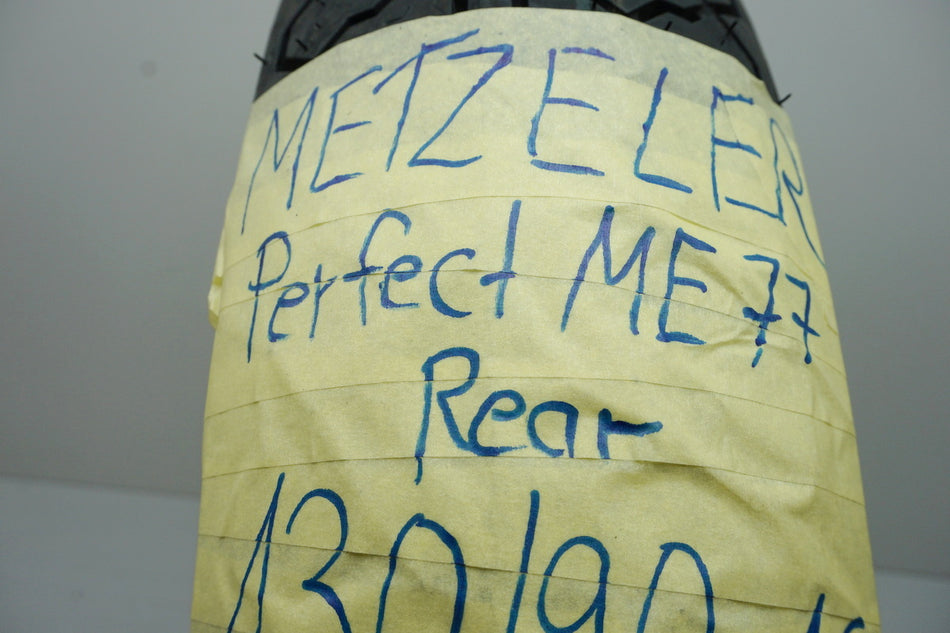 METZELER
Perfect ME 77
Rear
130/90